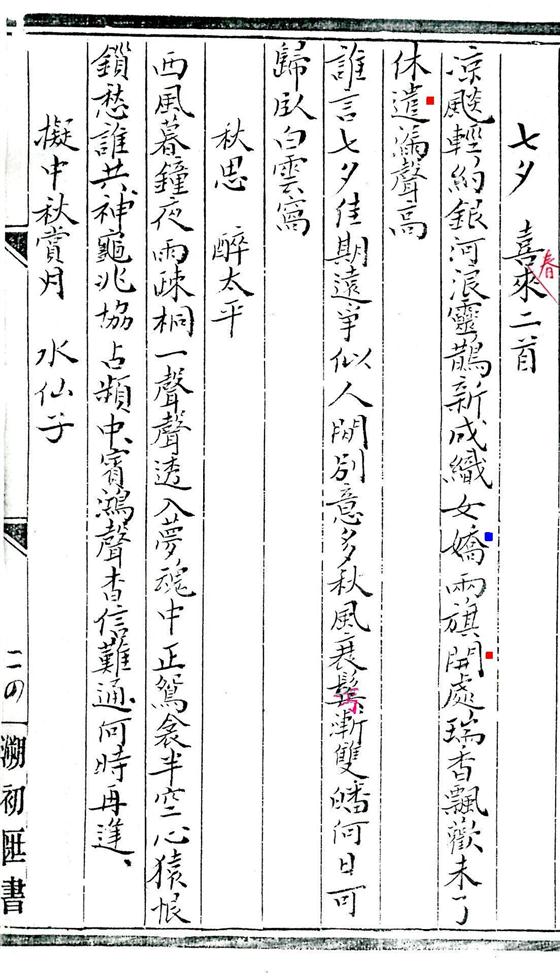 七夕 喜來二首
春
涼飈輕約銀河浪靈鵲新成織女嬌兩旗開處瑞香飄歡未了
休遣漏聲高
誰言七夕佳期遠爭似人間別意多秋風衰鬂漸雙皤何日可
歸臥白雲窩
秋思 醉太平
西風暮鐘夜雨疎桐一聲聲透入夢魂中正鴛衾半空心猿恨
鎖愁誰共神龜兆協占頻中賓鴻聲杳信難通何時再逢
擬中秋賞月 水仙子
二の
溯初匧書